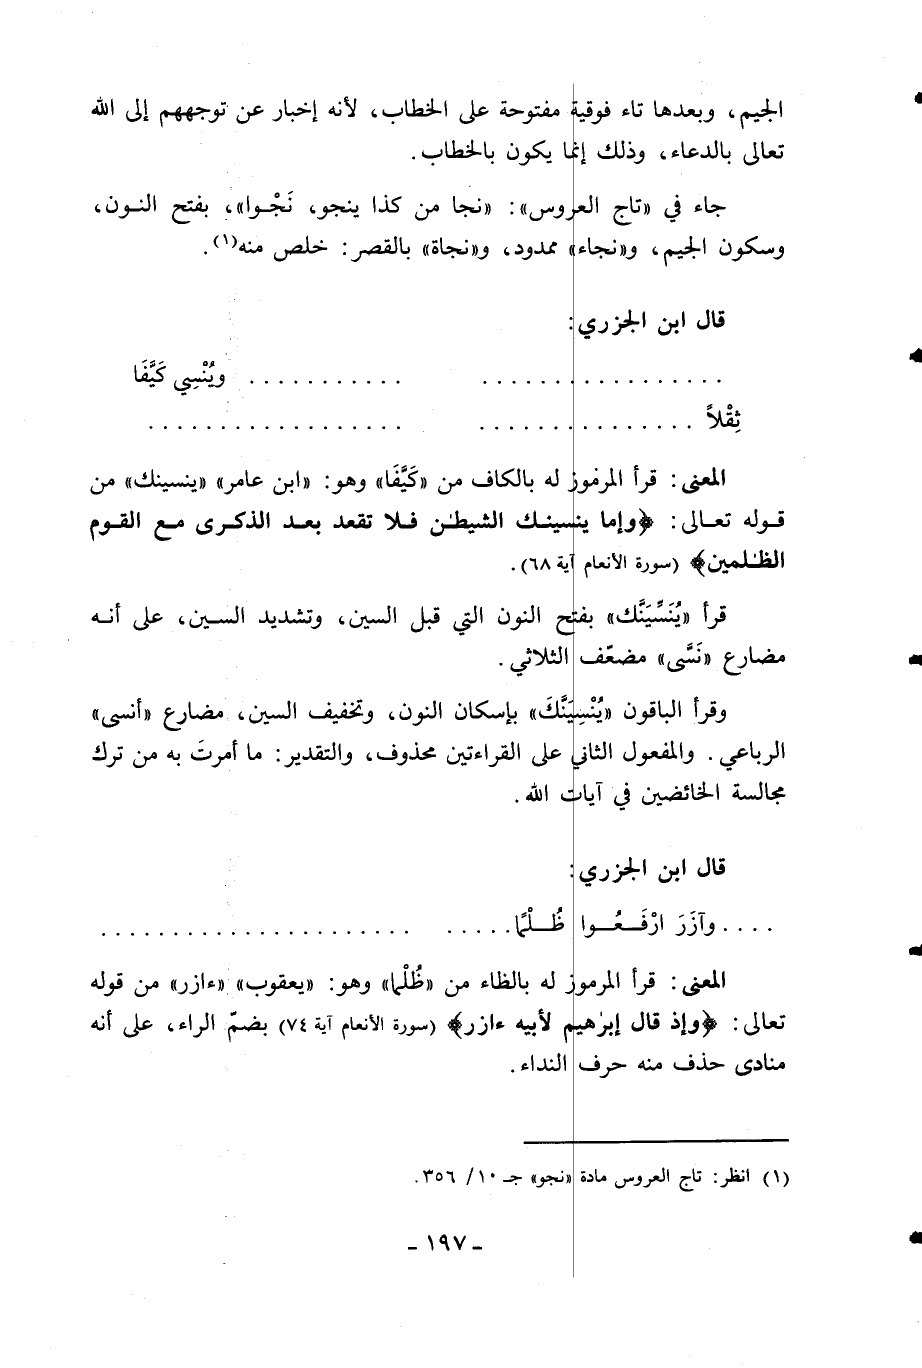 الجيم، وبعدها تاء فوقية مفتوحة على الخطاب، لأنه إخبار عن توجههم إلى الله
تعالى بالدعاء، وذلك إنما يكون بالخطاب.
جاء في «تاج العروس»: «نجا من كذا ينجو، نَجْوا»، بفتح النون،
وسكون الجيم، و«نجاء» ممدود، و«نجاة» بالقصر: خلص منه(١).
قال ابن الجزري:
. . . . . . . . . . . . . . . . . . . . . . . . . . . . ويُنْسِي كَيَّفَا
ثِقْلاً . . . . . . . . . . . . . . . . . . . . . . . . . . . . . . . . .
المعنى: قرأ المرموز له بالكاف من «كَيَّفَا» وهو: «ابن عامر» «ينسينك» من
قوله تعالى: ﴿وإما ينسينك الشيطٰن فلا تقعد بعد الذكرى مع القوم
الظٰلمين﴾ (سورة الأنعام آية ٦٨).
قرأ «يُنَسِّيَنَّك» بفتح النون التي قبل السين، وتشديد السين، على أنه
مضارع «نَسَّى» مضعّف الثلاثي.
وقرأ الباقون «يُنْسِيَنَّكَ» بإسكان النون، وتخفيف السين، مضارع «أنسى»
الرباعي. والمفعول الثاني على القراءتين محذوف، والتقدير: ما أمرتَ به من ترك
مجالسة الخائضين في آيات الله.
قال ابن الجزري:
. . . . وآزَرَ ارْفَعُوا ظُلْمًا. . . . . . . . . . . . . . . . . . . . . . . . . . . .
المعنى: قرأ المرموز له بالظاء من «ظُلْما» وهو: «يعقوب» «ءازر» من قوله
تعالى: ﴿وإذ قال إبرٰهيم لأبيه ءازر﴾ (سورة الأنعام آية ٧٤) بضمّ الراء، على أنه
منادى حذف منه حرف النداء.
(١) انظر: تاج العروس مادة «نجو» جـ ١٠/ ٣٥٦.
ـ ١٩٧ ـ